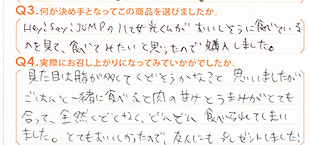 Q3.何が決め手となってこの商品を選びましたか。
Hey!Say!JUMPの八乙女光くんがおいしそうに食べている
のを見て、食べてみたいと思ったので購入しました。
Q4.実際にお召し上がりになってみていかがでしたか。
見た目は脂が多くてくどそうかな?と思いましたが
ごはんと一緒に食べると肉の甘みとうまみがとても
合って、全然くどくなく、どんどん食べられてしまい
ました。とてもおいしかったので、友人にもプレゼントしました!